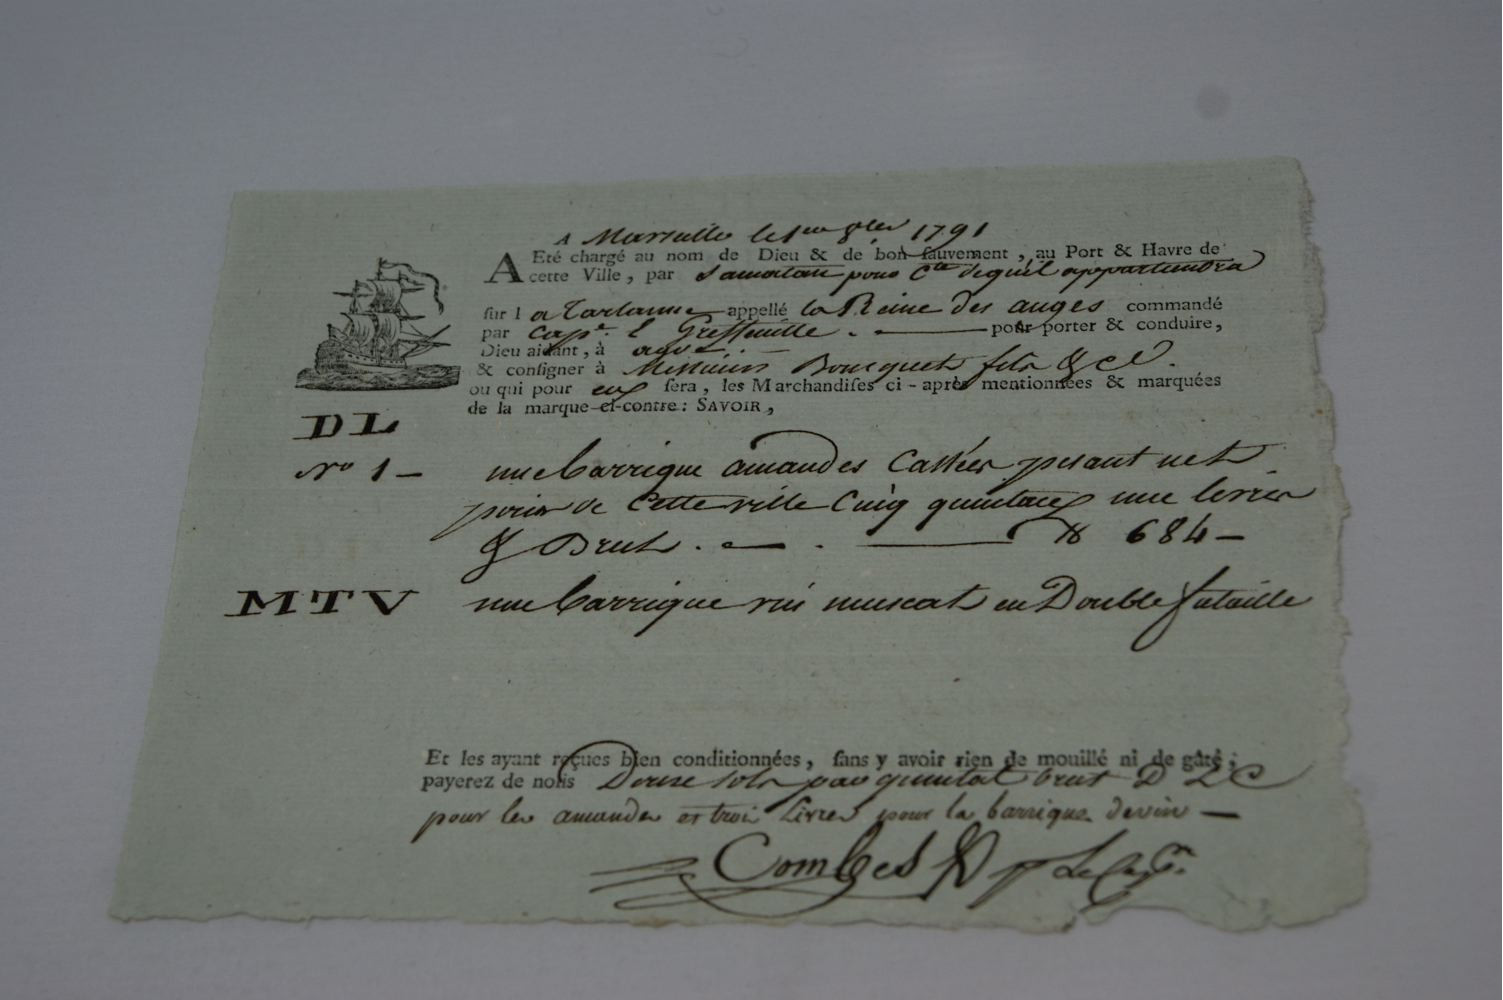 A Marseille le 1er 8bre 1791
A Eté chargé au nom de Dieu & de bon sauvement, au Port & Havre de
cette Ville, par Samatan pour Cte de qu'il appartiendra
sur la Tartanne appellé la Reine des anges commandé
par Cape. l Greffeuille pour porter & conduire,
Dieu aidant, à agde
& consigner à Messieurs Bousquet fils & Ce.
ou qui pour eux sera, les Marchandises ci-après mentionnées & marquées
de la marque ci-contre: SAVOIR,
DL
No 1 - une barrique amandes Cassées pesant net
poids de Cette ville Cinq quintaux une livres
& Brut. 684-
MTV une barrique vin muscat en Double futaille
Et les ayant reçues bien conditionnées, sans y avoir rien de mouillé ni de gâté;
payerez de nolis Douze sols par quintal brut D L C
pour les amandes et trois Livres pour la barrique de vin -
Combes p Le Capn.